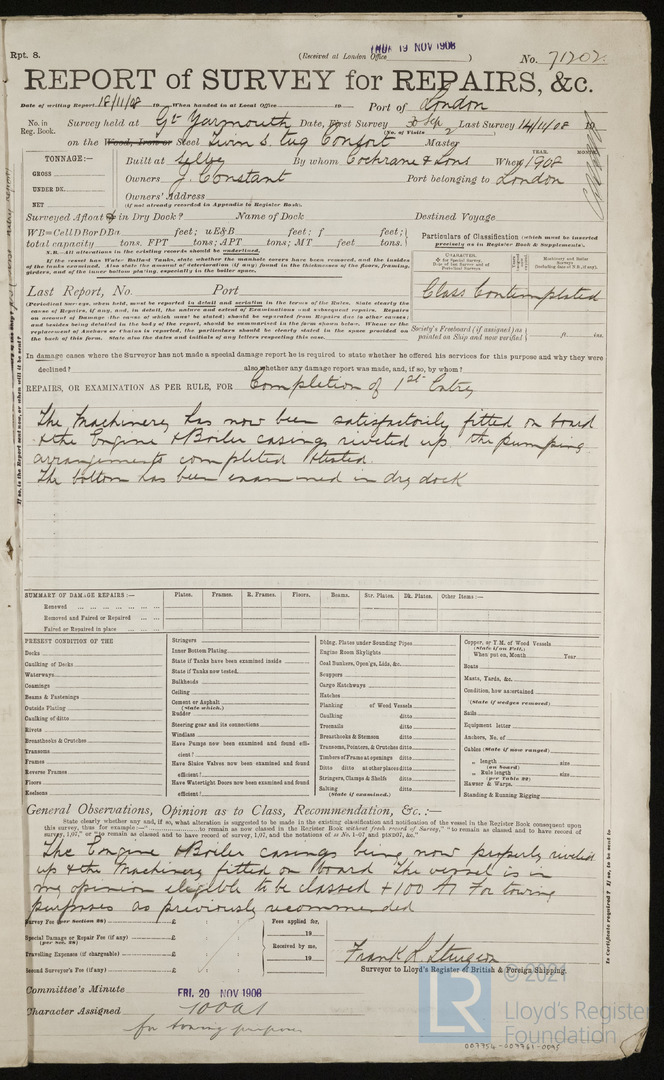 Rpt. 8.
(Received at London Office THUR. 19 NOV 1908 )
No. 71202.
REPORT of SURVEY for REPAIRS, &c.
Date of writing Report 18/11/08 19 When handed in at Local Office 19 Port of London
No. in Reg. Book.
Survey held at Gt Yarmouth Date, First Survey Sep Last Survey 14/11/08 19
(No. of Visits 2
on the Wood, Iron or Steel Twin S. Tug Confort Master
TONNAGE:—
GROSS
UNDER DK.
NET
Built at Selby By whom Cochrane & Sons When 1908
YEAR. MONTH.
Owners J. Constant Port belonging to London
Owners' Address
(if not already recorded in Appendix to Register Book.
Surveyed Afloat & in Dry Dock? Name of Dock Destined Voyage
WB=CellDBorDBa feet; uE&B feet; f feet;
total capacity tons. FPT tons; APT tons; MT feet tons.
N.B.—All alterations in the existing records should be underlined.
If the vessel has Water Ballast Tanks, state whether the manhole covers have been removed, and the insides
of the tanks examined. Also state the amount of deterioration (if any) found in the thicknesses of the floors, framing,
girders, and of the inner bottom plating, especially in the boiler space.
Particulars of Classification (which must be inserted
precisely as in Register Book & Supplements).
CHARACTER.
Class Contemplated
Society's Freeboard (if assigned) as
painted on Ship and now verified ft. ins.
Last Report, No. Port
(Periodical Surveys, when held, must be reported in detail and seriatim in the terms of the Rules. State clearly the
cause of Repairs, if any, and, in detail, the nature and extent of Examinations and subsequent repairs. Repairs
on account of damage (the cause of which must be stated) should be kept distinct from Repairs due to other causes;
and besides being detailed in the body of the report, should be summarised in the form shown below. Whenever the
replacement of Anchors or Chains is reported, the particulars should be clearly stated in the space provided on
the back of this form. State also the dates and initials of any letters respecting this case.
In damage cases where the Surveyor has not made a special damage report he is required to state whether he offered his services for this purpose and why they were
declined? also whether any damage report was made, and, if so, by whom?
REPAIRS, OR EXAMINATION AS PER RULE, FOR Completion of 1st Entry
The Machinery has now been satisfactorily fitted on board
& the Engine & Boiler casings riveted up. The pumping
arrangements completed & tested.
The bottom has been examined in dry dock
SUMMARY OF DAMAGE REPAIRS:— Plates. Frames. R. Frames. Floors. Beams. Str. Plates. Dk. Plates. Other Items:—
Renewed
Removed and Faired or Repaired
Faired or Repaired in place
PRESENT CONDITION OF THE
Decks
Caulking of Decks
Waterways
Coamings
Beams & Fastenings
Outside Plating
Caulking of ditto
Rivets
Breasthooks & Crutches
Transoms
Frames
Reverse Frames
Floors
Keelsons
Stringers
Inner Bottom Plating
State if Tanks have been examined inside
State if Tanks now tested
Bulkheads
Ceiling
Cement or Asphalt
(State which.)
Rudder
Steering gear and its connections
Windlass
Have Pumps now been examined and found efficient?
Have Sluice Valves now been examined and found
efficient?
Have Watertight Doors now been examined and found
efficient?
Dblng. Plates under Sounding Pipes
Engine Room Skylights
Coal Bunkers, Open'gs, Lids, &c.
Scuppers
Cargo Hatchways
Hatches
Planking of Wood Vessels
Caulking ditto
Treenails ditto
Breasthooks & Stemson ditto
Transoms, Pointers, & Crutches ditto
Timbers of Frame at openings ditto
Ditto ditto at other places ditto
Stringers, Clamps & Shelfs ditto
Salting ditto
(State if examined.)
Copper, or Y.M. of Wood Vessels
(State if on Felt.)
When put on, Month Year
Boats
Masts, Yards, &c.
Condition, how ascertained
(State if wedges removed)
Sails
Equipment letter
Anchors, No. of
Cables (State if now ranged)
„ length size
(on board)
„ Rule length size
(per Table 22)
Hawser & Warps.
Standing & Running Rigging
General Observations, Opinion as to Class, Recommendation, &c.:—
State clearly whether any, and if so, what alteration is suggested to be made in the existing classification and notification of the vessel in the Register Book consequent upon
this survey, thus for example:—" to remain as now classed in the Register Book without fresh record of Survey," "to remain as classed and to have record of
survey, 1,07," or "to remain as classed and to have record of survey, 1,07, and the notations of
The Engine & Boiler casings being now properly riveted
up & the Machinery fitted on board. The vessel is in
my opinion eligible to be classed +100 A1 For towing
purposes as previously recommended
Survey Fee (per Section 28) £
Special Damage or Repair Fee (if any) £
(per Sec. 28)
Travelling Expenses (if chargeable) £
Second Surveyor's Fee (if any) £
Fees applied for,
19
Received by me,
19
Frank R. Sturgeon
Surveyor to Lloyd's Register of British & Foreign Shipping.
Committee's Minute FRI. 20 NOV 1908
Character Assigned 100A1
for towing purposes
© 2021
LR
Lloyd's Register
Foundation
007754-007761-0095